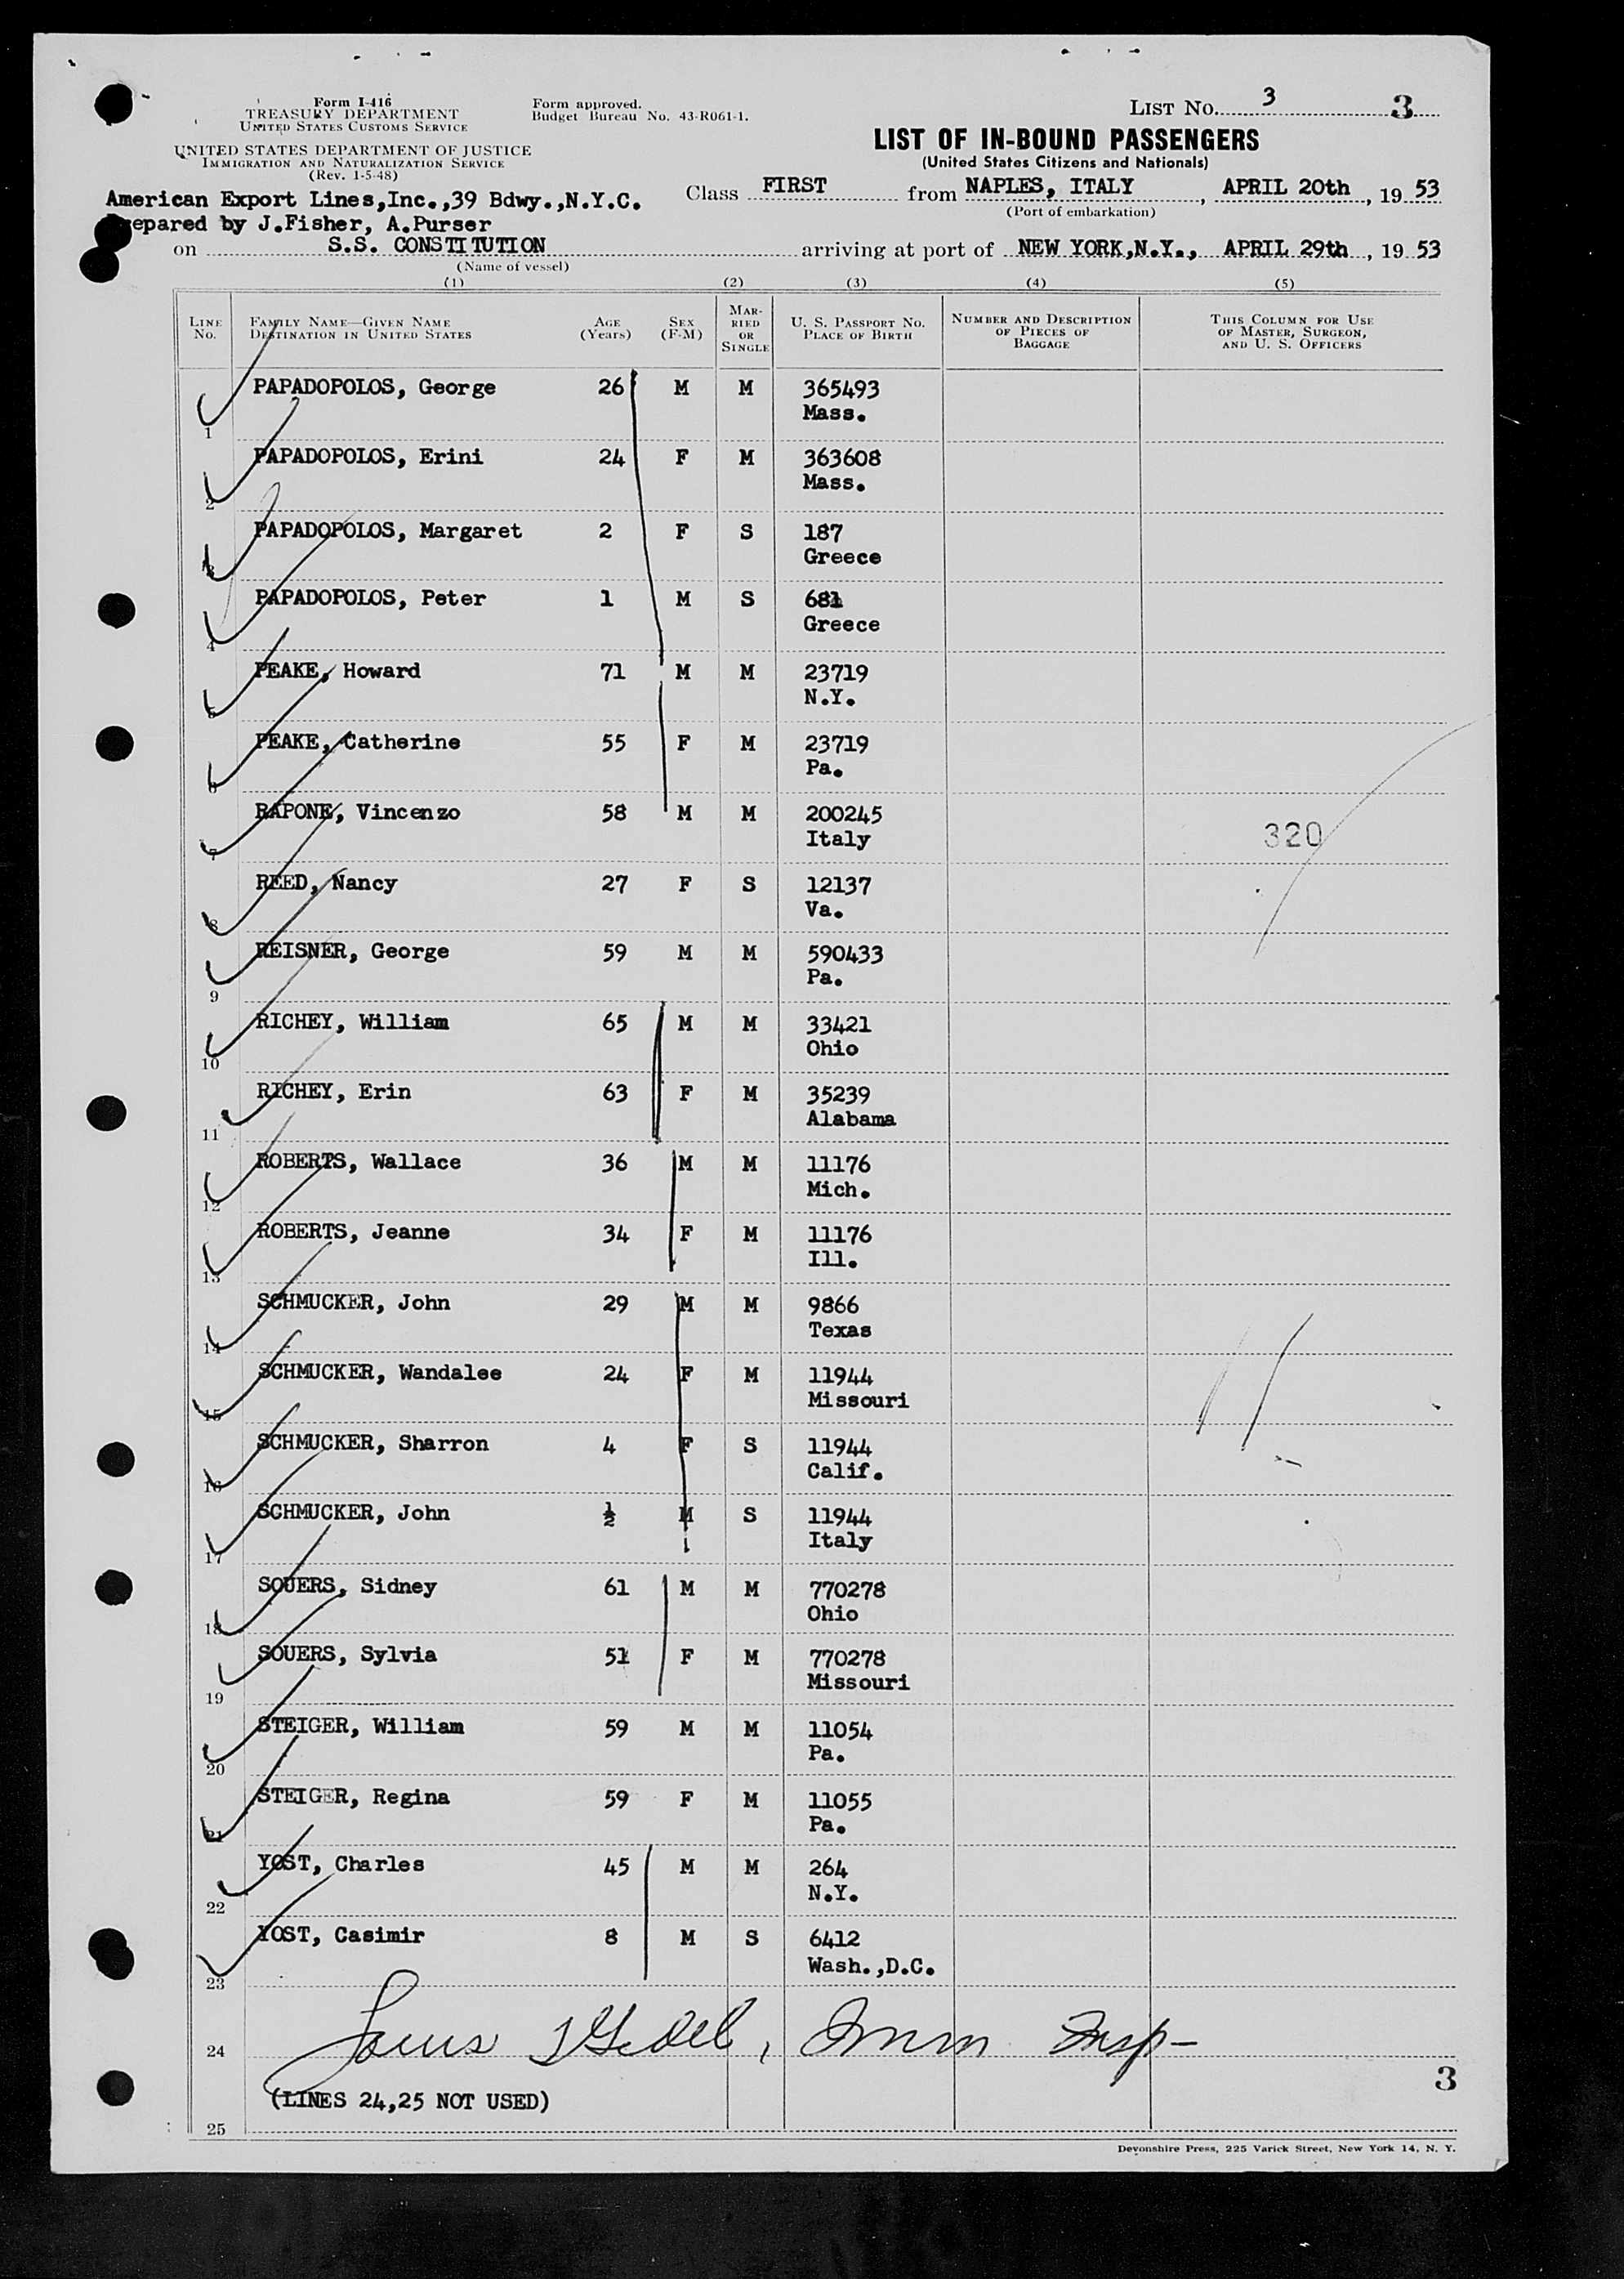 Form I-416
TREASURY DEPARTMENT
UNITED STATES CUSTOMS SERVICE
UNITED STATES DEPARTMENT OF JUSTICE
IMMIGRATION AND NATURALIZATION SERVICE
(Rev. 1-5-48)
Form approved.
Budget Bureau No. 43-R061-1.
LIST NO. 3 3
LIST OF IN-BOUND PASSENGERS
(United States Citizens and Nationals)
American Export Lines,Inc.,39 Bdwy.,N.Y.C.
Class FIRST from NAPLES, ITALY, APRIL 20th, 19 53
(Port of embarkation)
repared by J.Fisher, A.Purser
on S.S. CONSTITUTION arriving at port of NEW YORK,N.Y., APRIL 29th, 19 53
(Name of vessel)
(1) (2) (3) (4) (5)
LINE NO. FAMILY NAME—GIVEN NAME DESTINATION IN UNITED STATES AGE (Years) SEX (F-M) MARRIED OR SINGLE U. S. PASSPORT NO. PLACE OF BIRTH NUMBER AND DESCRIPTION OF PIECES OF BAGGAGE THIS COLUMN FOR USE OF MASTER, SURGEON, AND U. S. OFFICERS
PAPADOPOLOS, George 26 M M 365493
1 Mass.
PAPADOPOLOS, Erini 24 F M 363608
2 Mass.
PAPADOPOLOS, Margaret 2 F S 187
3 Greece
PAPADOPOLOS, Peter 1 M S 681
4 Greece
PEAKE, Howard 71 M M 23719
5 N.Y.
PEAKE, Catherine 55 F M 23719
6 Pa.
RAPONE, Vincenzo 58 M M 200245
7 Italy 320
REED, Nancy 27 F S 12137
8 Va.
REISNER, George 59 M M 590433
9 Pa.
RICHEY, William 65 M M 33421
10 Ohio
RICHEY, Erin 63 F M 35239
11 Alabama
ROBERTS, Wallace 36 M M 11176
12 Mich.
ROBERTS, Jeanne 34 F M 11176
13 Ill.
SCHMUCKER, John 29 M M 9866
14 Texas
SCHMUCKER, Wandalee 24 F M 11944
15 Missouri
SCHMUCKER, Sharron 4 F S 11944
16 Calif.
SCHMUCKER, John ½ M S 11944
17 Italy
SOUERS, Sidney 61 M M 770278
18 Ohio
SOUERS, Sylvia 51 F M 770278
19 Missouri
STEIGER, William 59 M M 11054
20 Pa.
STEIGER, Regina 59 F M 11055
21 Pa.
YOST, Charles 45 M M 264
22 N.Y.
YOST, Casimir 8 M S 6412
23 Wash.,D.C.
24 Louis Imm Insp-
(LINES 24,25 NOT USED) 3
25
Devonshire Press, 225 Varick Street, New York 14, N. Y.